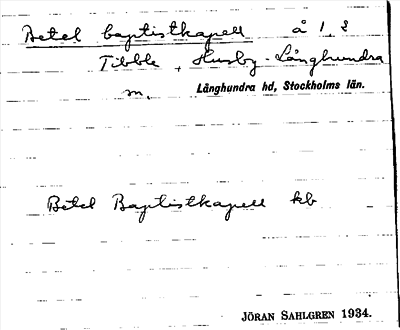 Betel baptistkapell å 1 8
Tibble, Husby-Långhundra
m. Långhundra hd, Stockholms län.
Betel Baptistkapell kb
JÖRAN SAHLGREN 1934.